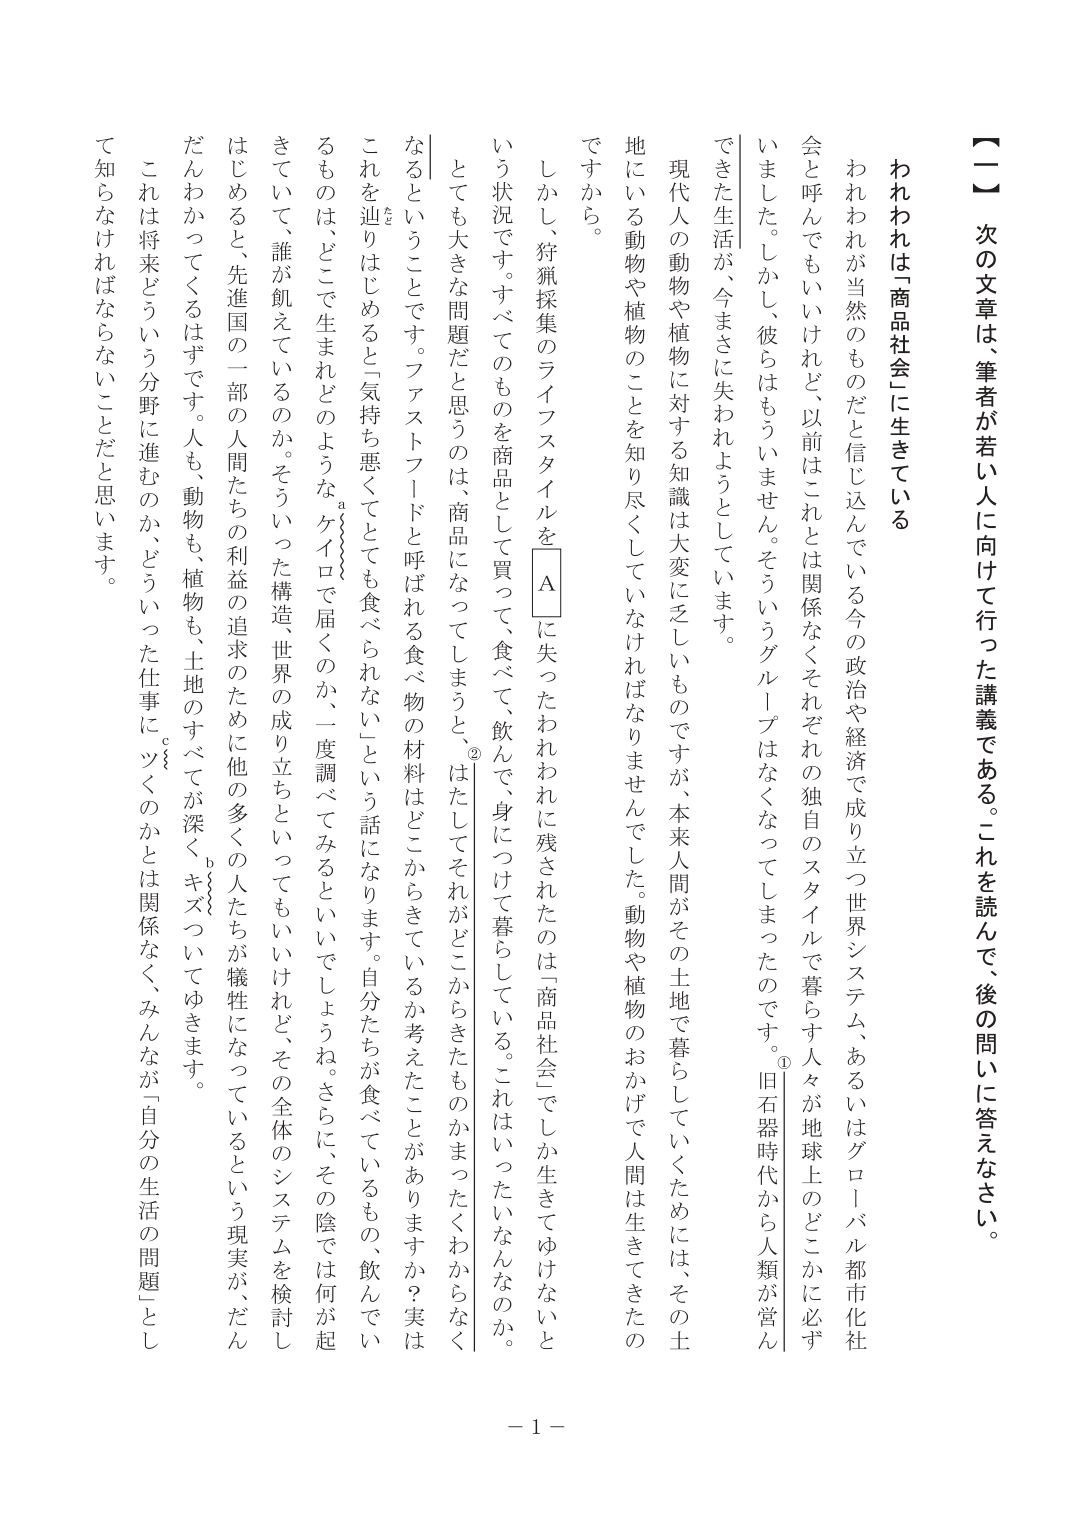 【一】　次の文章は、筆者が若い人に向けて行った講義である。これを読んで、後の問いに答えなさい。
われわれは「商品社会」に生きている
われわれが当然のものだと信じ込んでいる今の政治や経済で成り立つ世界システム、あるいはグローバル都市化社
会と呼んでもいいけれど、以前はこれとは関係なくそれぞれの独自のスタイルで暮らす人々が地球上のどこかに必ず
いました。しかし、彼らはもういません。そういうグループはなくなってしまったのです。①旧石器時代から人類が営ん
できた生活が、今まさに失われようとしています。
現代人の動物や植物に対する知識は大変に乏しいものですが、本来人間がその土地で暮らしていくためには、その土
地にいる動物や植物のことを知り尽くしていなければなりませんでした。動物や植物のおかげで人間は生きてきたの
ですから。
しかし、狩猟採集のライフスタイルを A に失ったわれわれに残されたのは「商品社会」でしか生きてゆけないと
いう状況です。すべてのものを商品として買って、食べて、飲んで、身につけて暮らしている。これはいったいなんなのか。
とても大きな問題だと思うのは、商品になってしまうと、②はたしてそれがどこからきたものかまったくわからなく
なるということです。ファストフードと呼ばれる食べ物の材料はどこからきているか考えたことがありますか？実は
これを辿りはじめると「気持ち悪くてとても食べられない」という話になります。自分たちが食べているもの、飲んでい
たど
るものは、どこで生まれどのようなaケイロで届くのか、一度調べてみるといいでしょうね。さらに、その陰では何が起
きていて、誰が飢えているのか。そういった構造、世界の成り立ちといってもいいけれど、その全体のシステムを検討し
はじめると、先進国の一部の人間たちの利益の追求のために他の多くの人たちが犠牲になっているという現実が、だん
だんわかってくるはずです。人も、動物も、植物も、土地のすべてが深くbキズついてゆきます。
これは将来どういう分野に進むのか、どういった仕事にcツくのかとは関係なく、みんなが「自分の生活の問題」とし
て知らなければならないことだと思います。
－1－